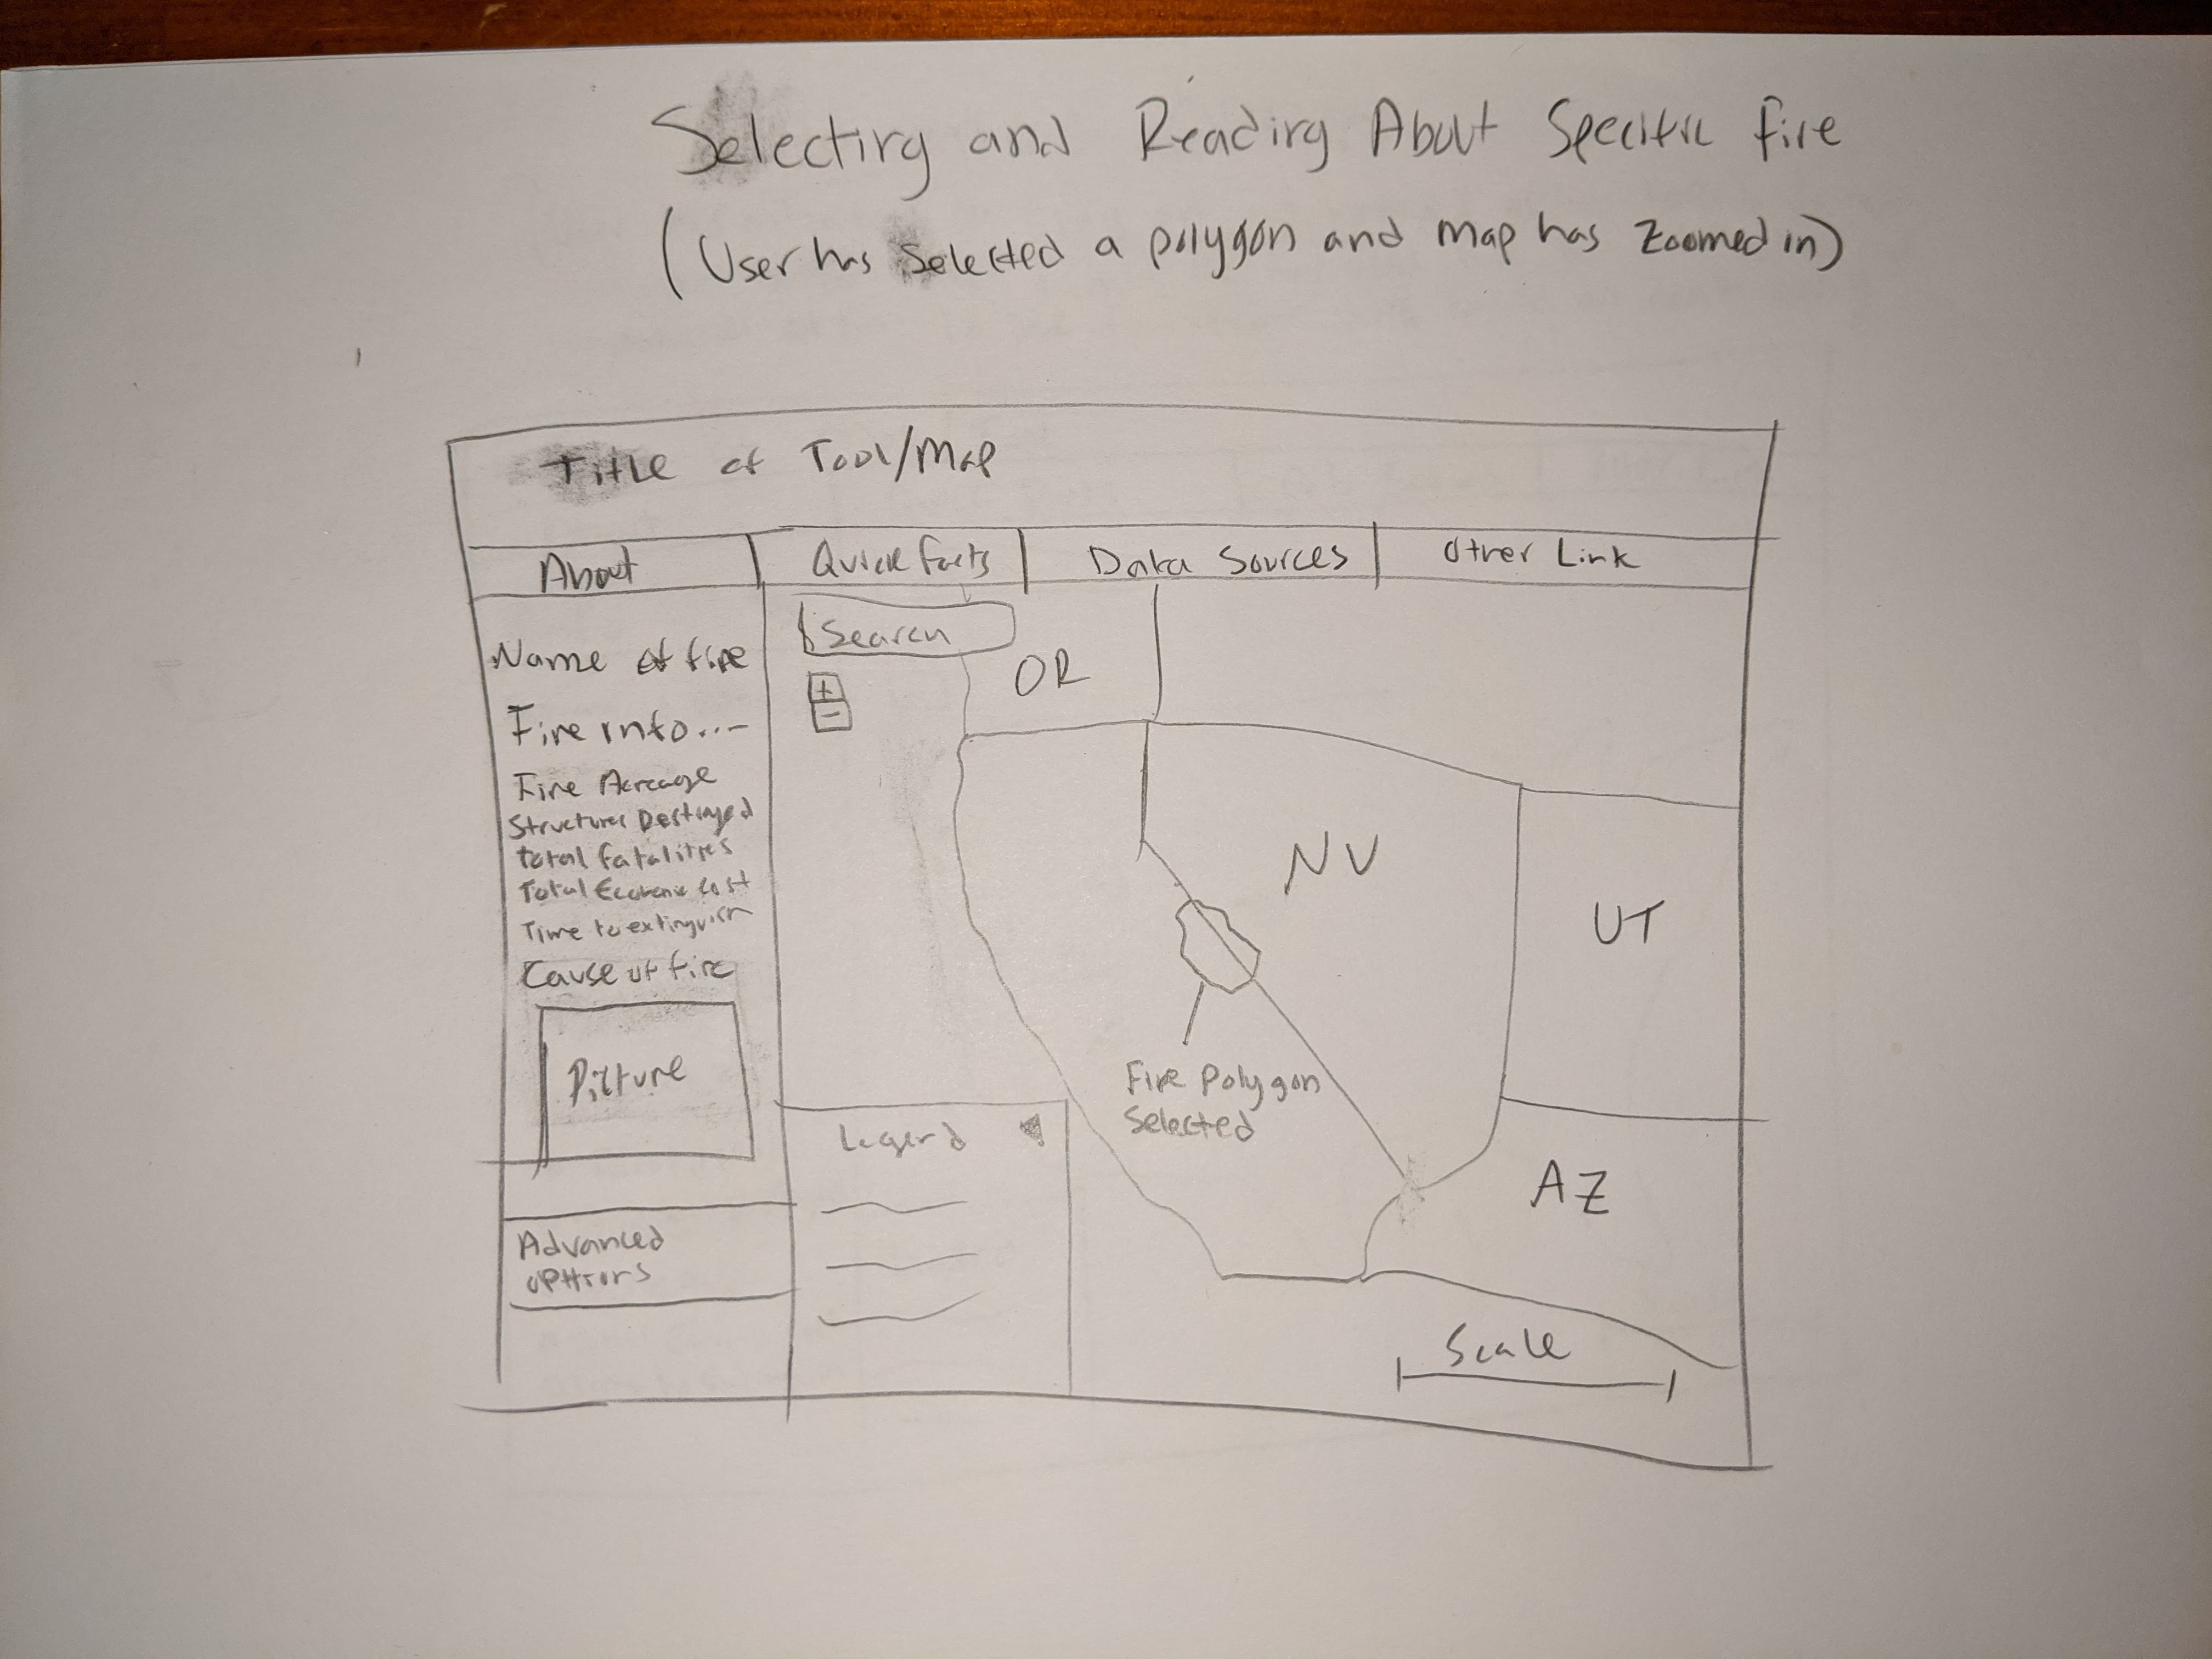 Selecting and Reading About Specific Fire
(User has selected a polygon and map has zoomed in)
Title of Tool/Map
About
Quick Facts
Data Sources
Other Link
Name of fire
Fire info...
Fire Acreage
Structures Destroyed
total fatalities
Total Economic cost
Time to extinguish
Cause of fire
Picture
Advanced
options
Search
+
-
OR
NV
UT
AZ
Fire Polygon
selected
Legend
Scale